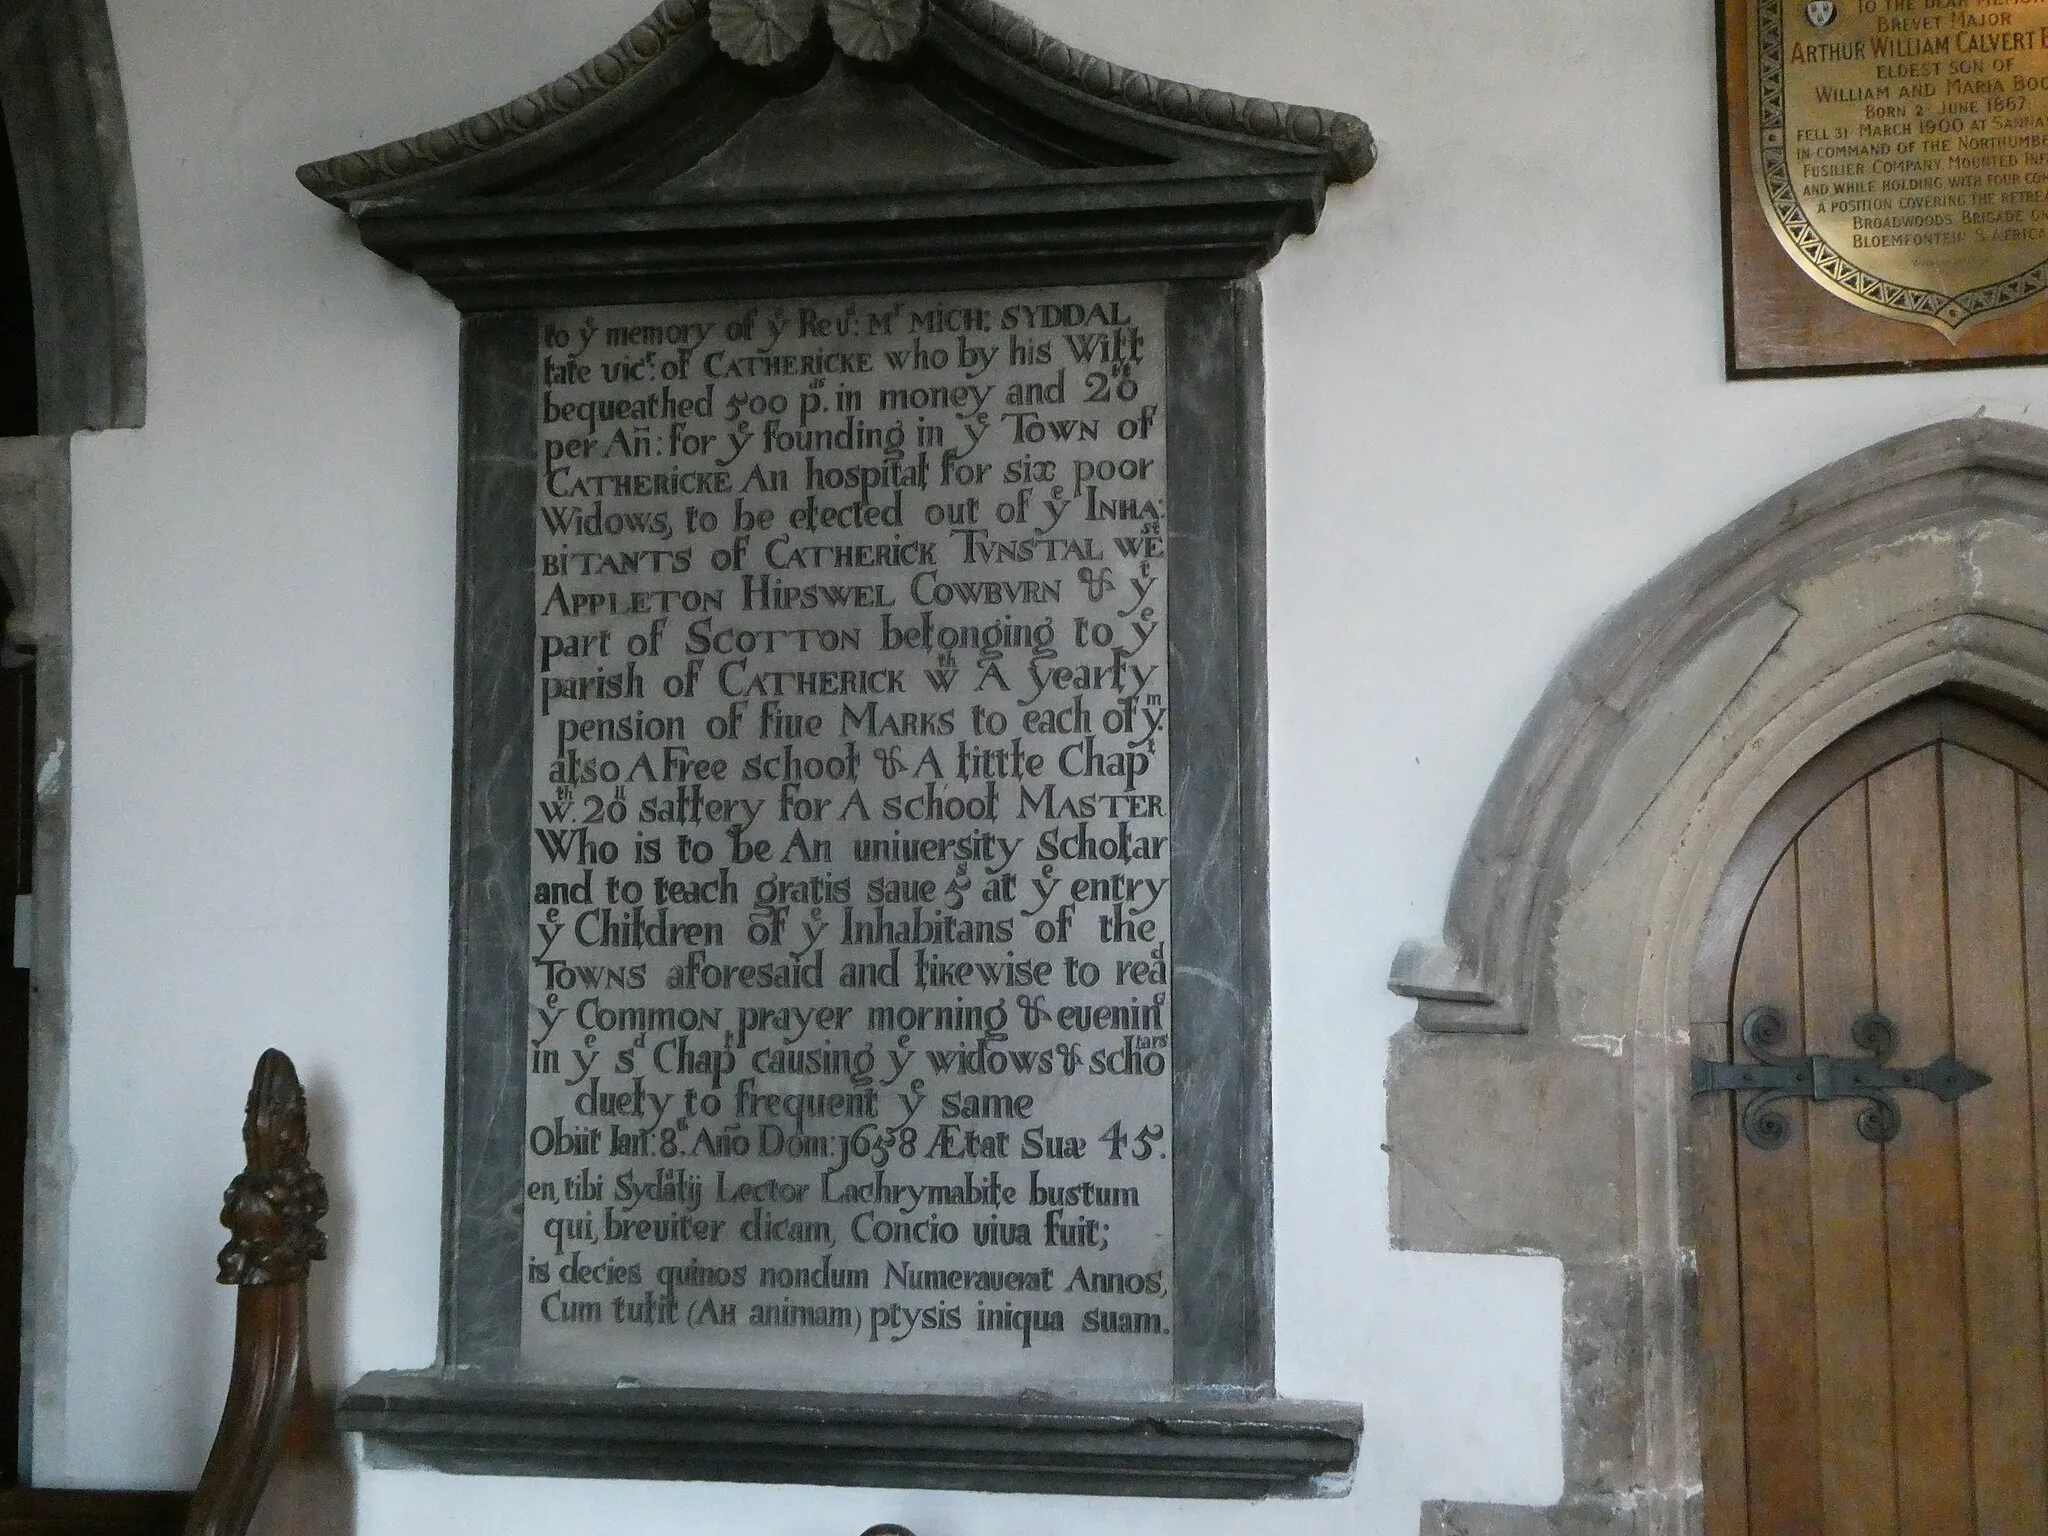 to yᵉ memory of yᵉ Revᵈ: Mʳ MICH: SYDDAL
late vicʳ: of CATHERICKE who by his Will
bequeathed 500 pᵈˢ. in money and 20ˡˡ
per Añ: for yᵉ founding in yᵉ TOWN of
CATHERICKE An hospital for six poor
Widows, to be elected out of yᵉ INHA:
BITANTS of CATHERICK TVNSTAL WEˢᵗ
APPLETON HIPSWEL COWBVRN & yᵗ
part of SCOTTON belonging to yᵉ
parish of CATHERICK wᵗʰ A yearly
pension of fiue MARKS to each of yᵐ.
also A Free school & A little Chapˡ
wᵗʰ. 20ˡˡ sallery for A school MASTER
Who is to be An uniuersity Scholar
and to teach gratis saue 5ˢ at yᵉ entry
yᵉ Children of yᵉ Inhabitans of the
TOWNS aforesaid and likewise to reaᵈ
yᵉ COMMON prayer morning & eueninᵍ
in yᵉ sᵈ Chapˡ causing yᵉ widows & schoˡᵃʳˢ
duely to frequent yᵉ same
Obiit Ian: 8ᵗʰ. Año Dom: 1658 Ætat Suæ 45.
en, tibi Syddalij Lector Lachrymabile bustum
qui, breuiter dicam, Concio viva fuit;
is decies quinos nondum Numerauerat Annos,
Cum tulit (AH animam) ptysis iniqua suam.
TO THE DEAR MEMOR
BREVET MAJOR
ARTHUR WILLIAM CALVERT B
ELDEST SON OF
WILLIAM AND MARIA BOO
BORN 2 JUNE 1867
FELL 31 MARCH 1900 AT SANNA
IN COMMAND OF THE NORTHUMBE
FUSILIER COMPANY MOUNTED INF
AND WHILE HOLDING WITH FOUR COM
A POSITION COVERING THE RETREA
BROADWOODS BRIGADE ON
BLOEMFONTEIN S. AFRICA